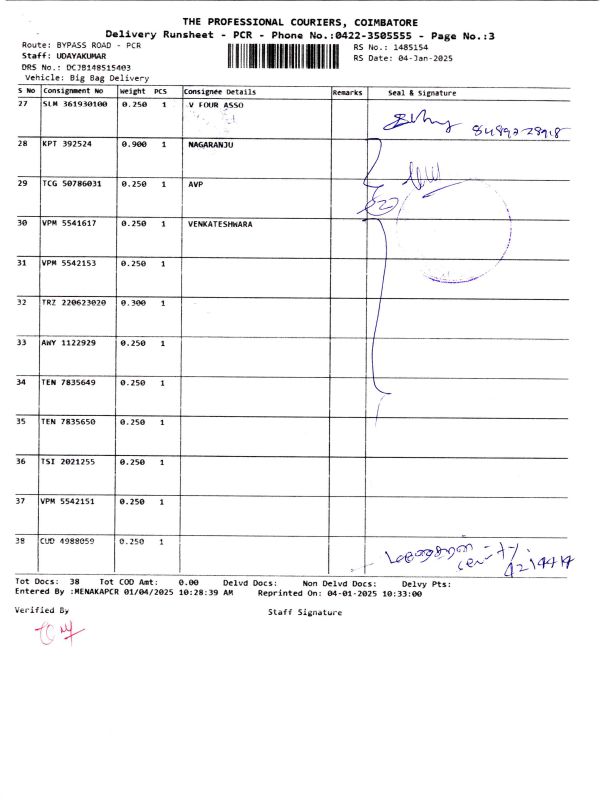 THE PROFESSIONAL COURIERS, COIMBATORE
Delivery Runsheet - PCR - Phone No.:0422-3505555 - Page No.:3
Route: BYPASS ROAD - PCR
RS No.: 1485154
Staff: UDAYAKUMAR
RS Date: 04-Jan-2025
DRS No.: DCJB148515403
Vehicle: Big Bag Delivery
S No Consignment No Weight PCS Consignee Details Remarks Seal & Signature
27 SLM 361930100 0.250 1 V FOUR ASSO
28 KPT 392524 0.900 1 NAGARANJU
29 TCG 50786031 0.250 1 AVP
30 VPM 5541617 0.250 1 VENKATESHWARA
31 VPM 5542153 0.250 1
32 TRZ 220623020 0.300 1
33 AWY 1122929 0.250 1
34 TEN 7835649 0.250 1
35 TEN 7835650 0.250 1
36 TSI 2021255 0.250 1
37 VPM 5542151 0.250 1
38 CUD 4988059 0.250 1
Tot Docs: 38 Tot COD Amt: 0.00 Delvd Docs: Non Delvd Docs: Delvy Pts:
Entered By :MENAKAPCR 01/04/2025 10:28:39 AM Reprinted On: 04-01-2025 10:33:00
Verified By
Staff Signature